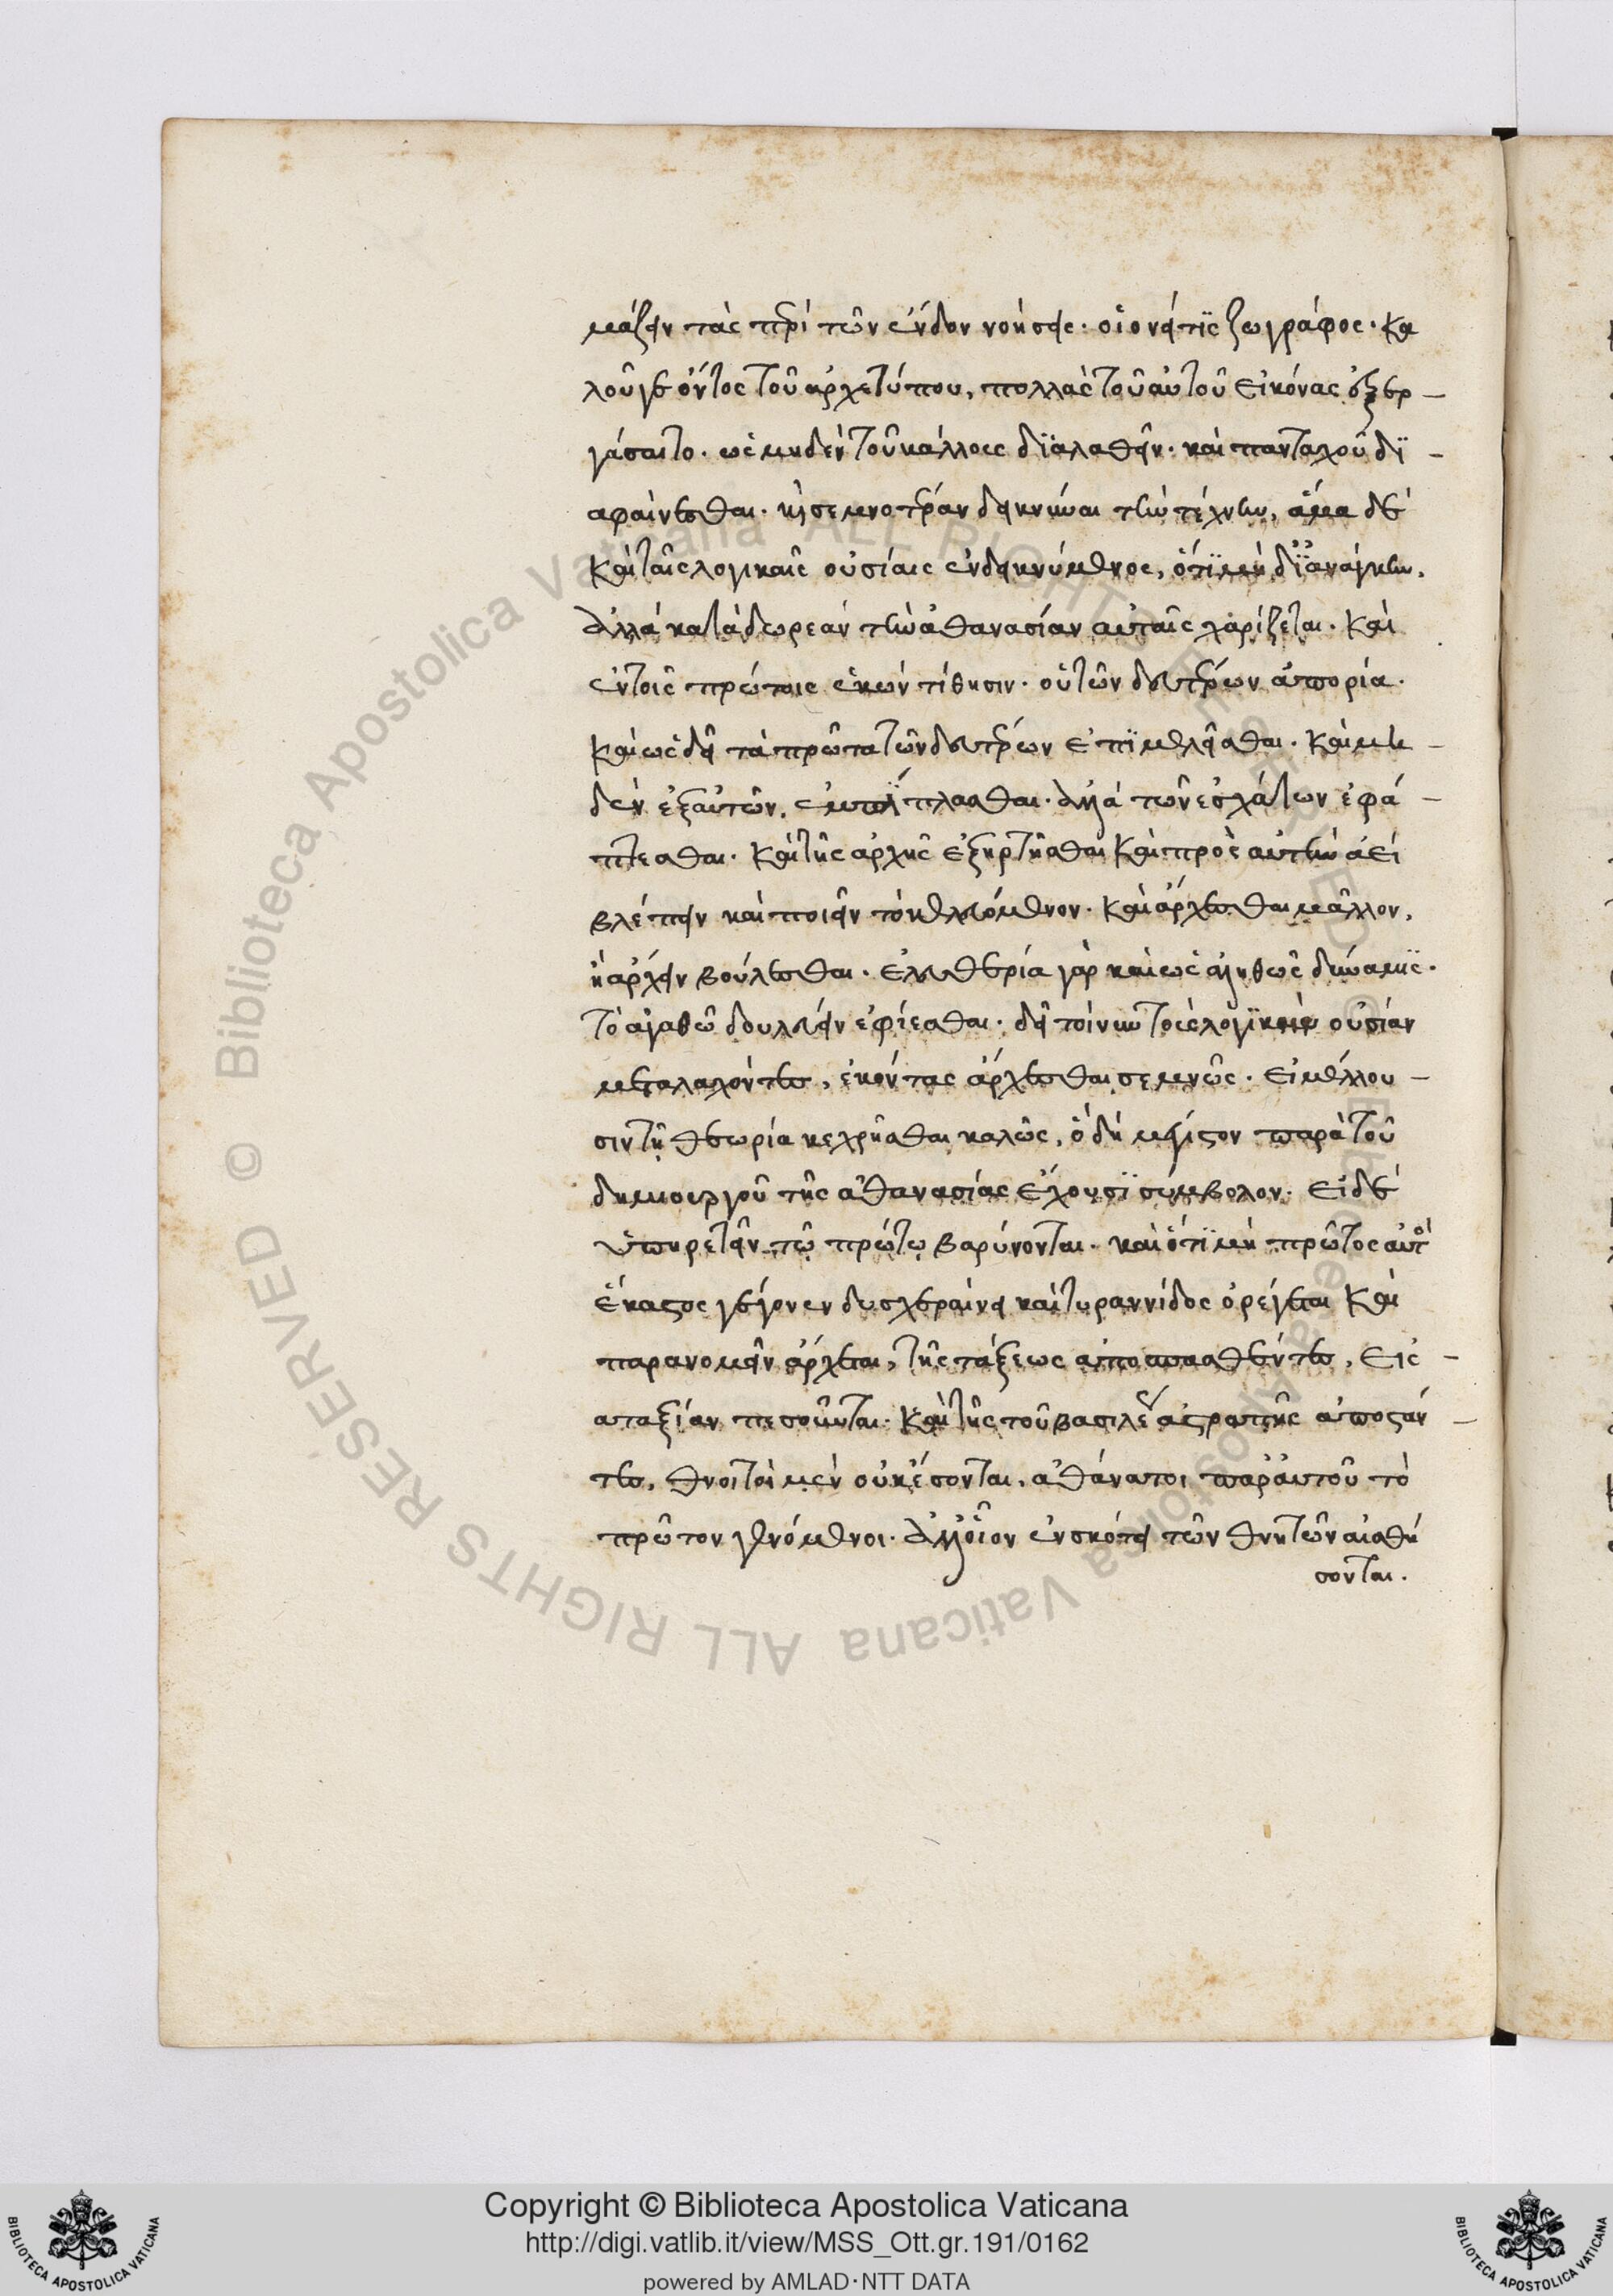 μάζειν τὰς περὶ τῶν ἔνδον νοήσεις· οἷον εἴ τις ζωγράφος· κα
λοῦ γε ὄντος τοῦ ἀρχετύπου, πολλὰς τοῦ αὐτοῦ εἰκόνας ἐξερ –
γάσαιτο· ὡς μηδὲν τοῦ κάλλους διαλαθεῖν· καὶ πανταχοῦ δι –
αφαίνεσθαι· καὶ σεμνοτέραν δεικνύναι τὴν τέχνην, ἅμα δὲ
καὶ ταῖς λογικαῖς οὐσίαις ἐνδεικνύμενος, ὅτι μὴ δι' ἀνάγκην,
ἀλλὰ κατὰ δωρεὰν τὴν ἀθανασίαν αὐταῖς χαρίζεται· καὶ
ἐν τοῖς πρώτοις ἑκὼν τίθησιν· οὐ τῶν δευτέρων ἀπορία·
καὶ ὡς δεῖ τὰ πρῶτα τῶν δευτέρων ἐπιμελεῖσθαι· καὶ μη –
δὲν ἐξ αὐτῶν, ἐμπίπλασθαι· ἀλλὰ τῶν ἐσχάτων ἐφά –
πτεσθαι· καὶ τῆς ἀρχῆς ἐξηρτῆσθαι καὶ πρὸς αὐτὴν ἀεὶ
βλέπειν καὶ ποιεῖν τὸ κελευόμενον· καὶ ἄρχεσθαι μᾶλλον,
ἢ ἄρχειν βούλεσθαι· ἐλευθερία γὰρ καὶ ὡς ἀληθῶς δύναμις·
τὸ ἀγαθῶ δουλεύειν ἐφίεσθαι· δεῖ τοίνυν τοὺς λογικὴν οὐσίαν
μεταλαχόντας, ἑκόντας ἄρχεσθαι σεμνῶς· εἰ μέλλου –
σιν τῇ θεωρία κεχρῆσθαι καλῶς, ὃ δὴ μέγιστον παρὰ τοῦ
δημιουργοῦ τῆς ἀθανασίας ἔχουσι σύμβολον· εἰ δὲ
ὑπηρετεῖν τῷ πρώτῳ βαρύνονται· καὶ ὅτι μὴ πρῶτος αὐτὸς
ἕκαστος γέγονεν δυσχεραίνει καὶ τυραννίδος ὀρέγεται καὶ
παρανομεῖν ἄρχεται, τῆς τάξεως ἀποσπασθέντες, εἰς –
ἀταξίαν πεσοῦνται· καὶ τῆς τοῦ βασιλέως ἀστραπῆς ἀποστάν –
τες, θνητοὶ μὲν οὐκ ἔσονται, ἀθάνατοι παρ' αὐτοῦ τὸ
πρῶτον γενόμενοι· ἀλλ' οἷον ἐν σκότει τῶν θνητῶν αἰσθή
σονται.
© Biblioteca Apostolica Vaticana ALL RIGHTS RESERVED © Biblioteca Apostolica Vaticana ALL RIGHTS RESERVED
Copyright © Biblioteca Apostolica Vaticana
http://digi.vatlib.it/view/MSS_Ott.gr.191/0162
powered by AMLAD·NTT DATA
BIBLIOTECA APOSTOLICA VATICANA
BIBLIOTECA APOSTOLICA VATICANA